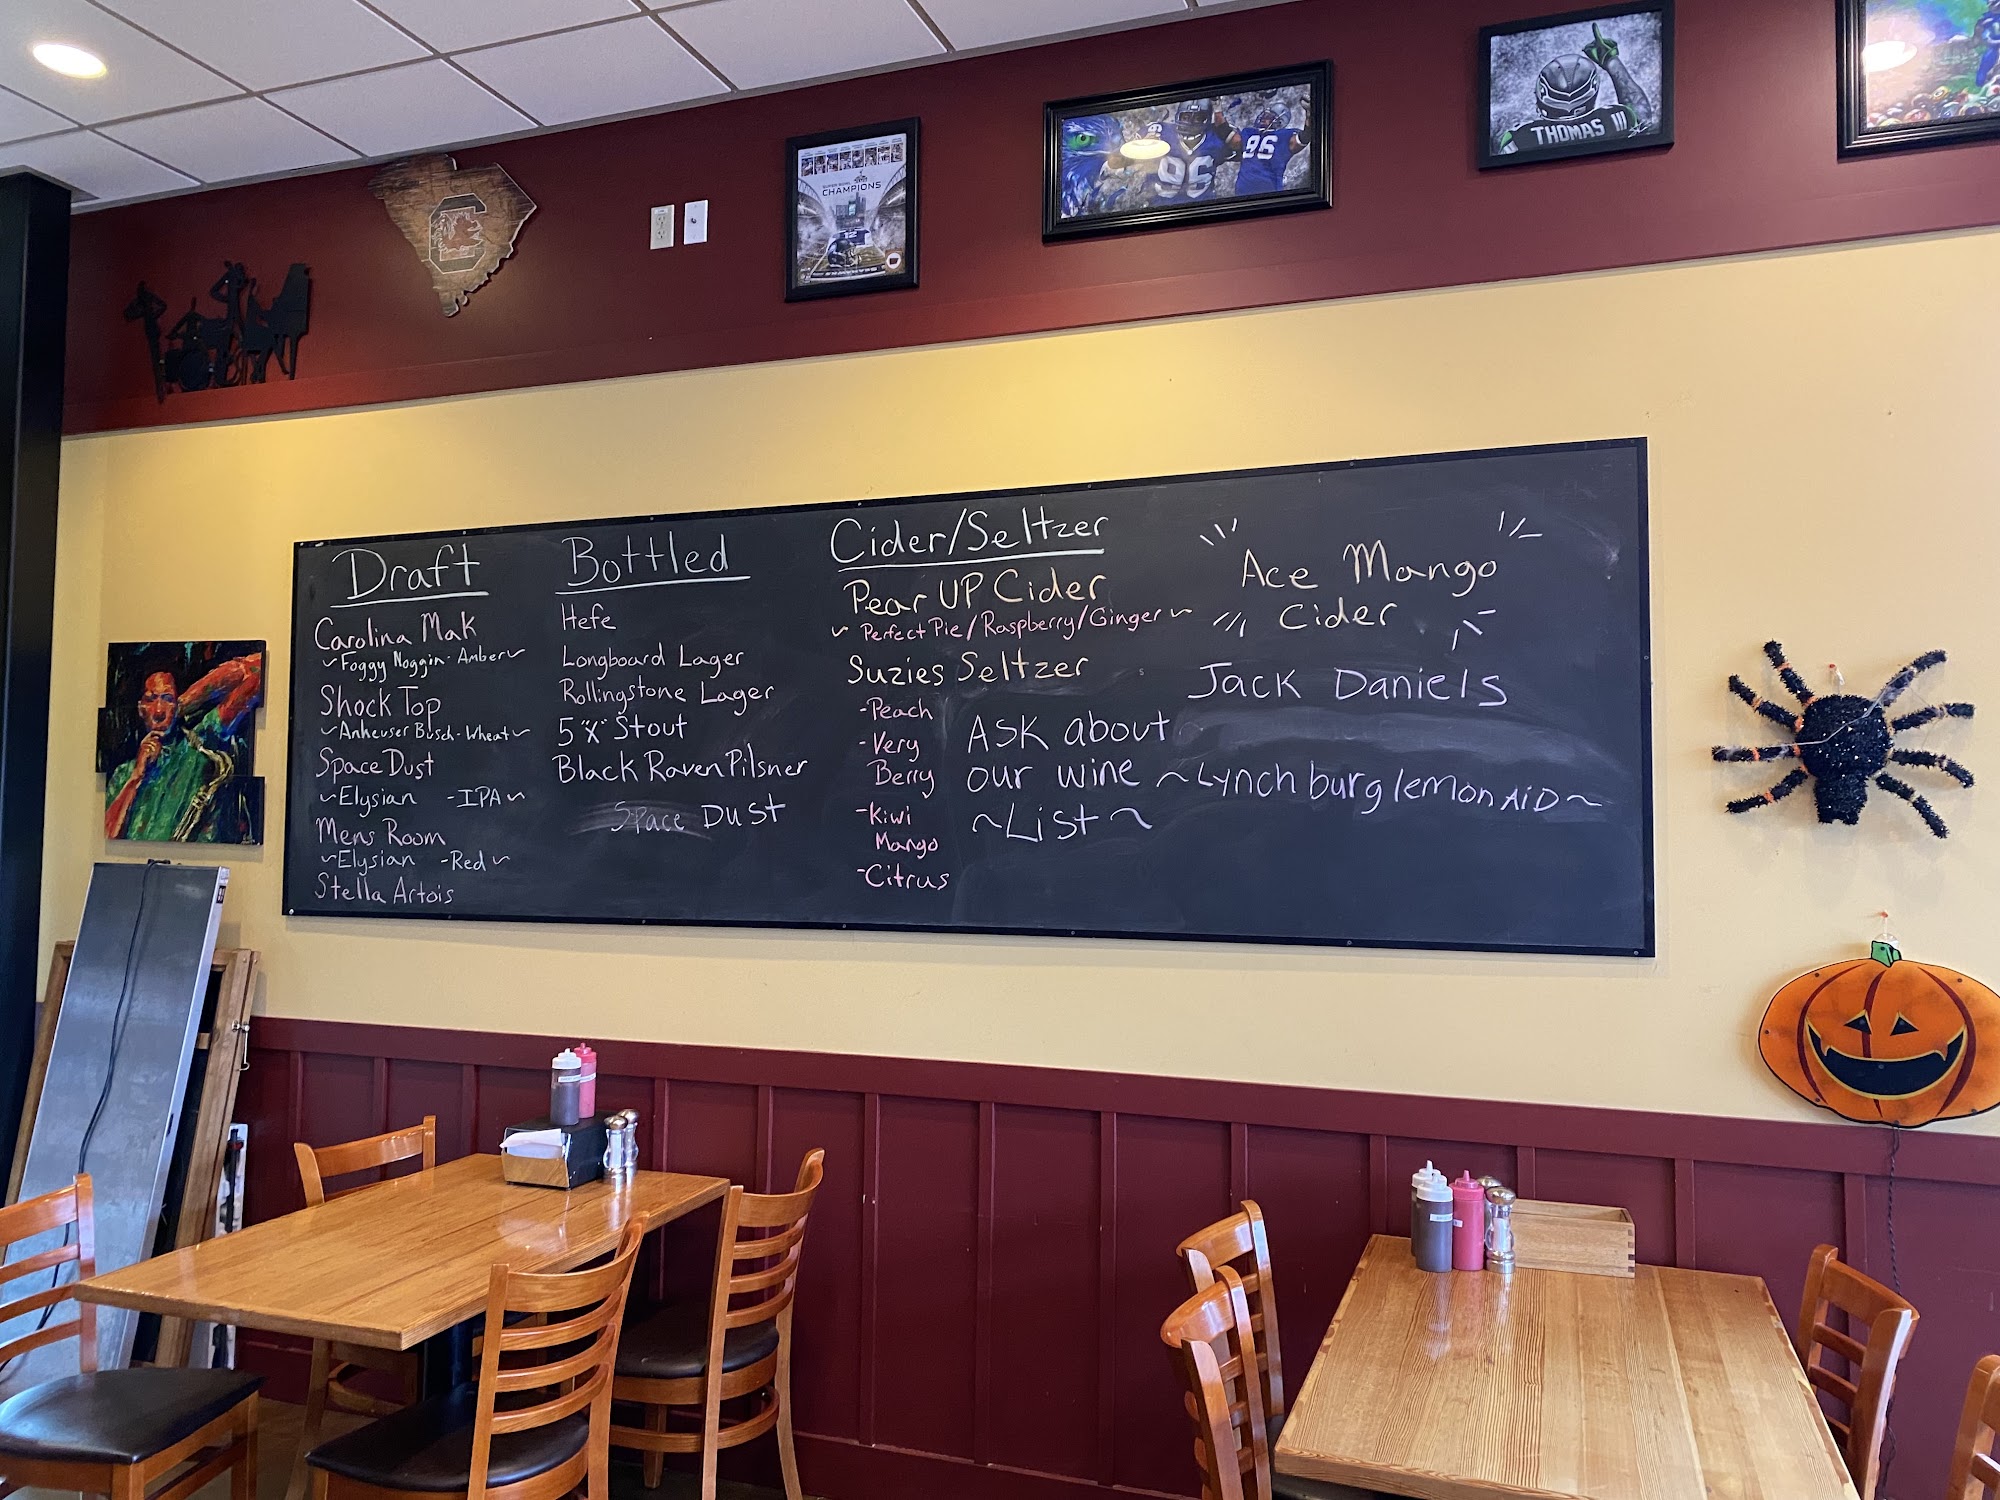 CHAMPIONS
96
96
THOMAS III
Draft
Carolina Mak
~Foggy Noggin-Amber~
Shock Top
~Anheuser Busch-Wheat~
Space Dust
~Elysian -IPA~
Mens Room
~Elysian -Red~
Stella Artois
Bottled
Hefe
Longboard Lager
Rollingstone Lager
5 "X" Stout
Black Raven Pilsner
Space Dust
Cider/Seltzer
Pear UP Cider
~ Perfect Pie/Raspberry/Ginger ~
Suzies Seltzer
-Peach
-Very
Berry
-Kiwi
Mango
-Citrus
Ask about
our wine
~List~
Ace Mango
Cider
Jack Daniels
~Lynchburg lemonAiD~